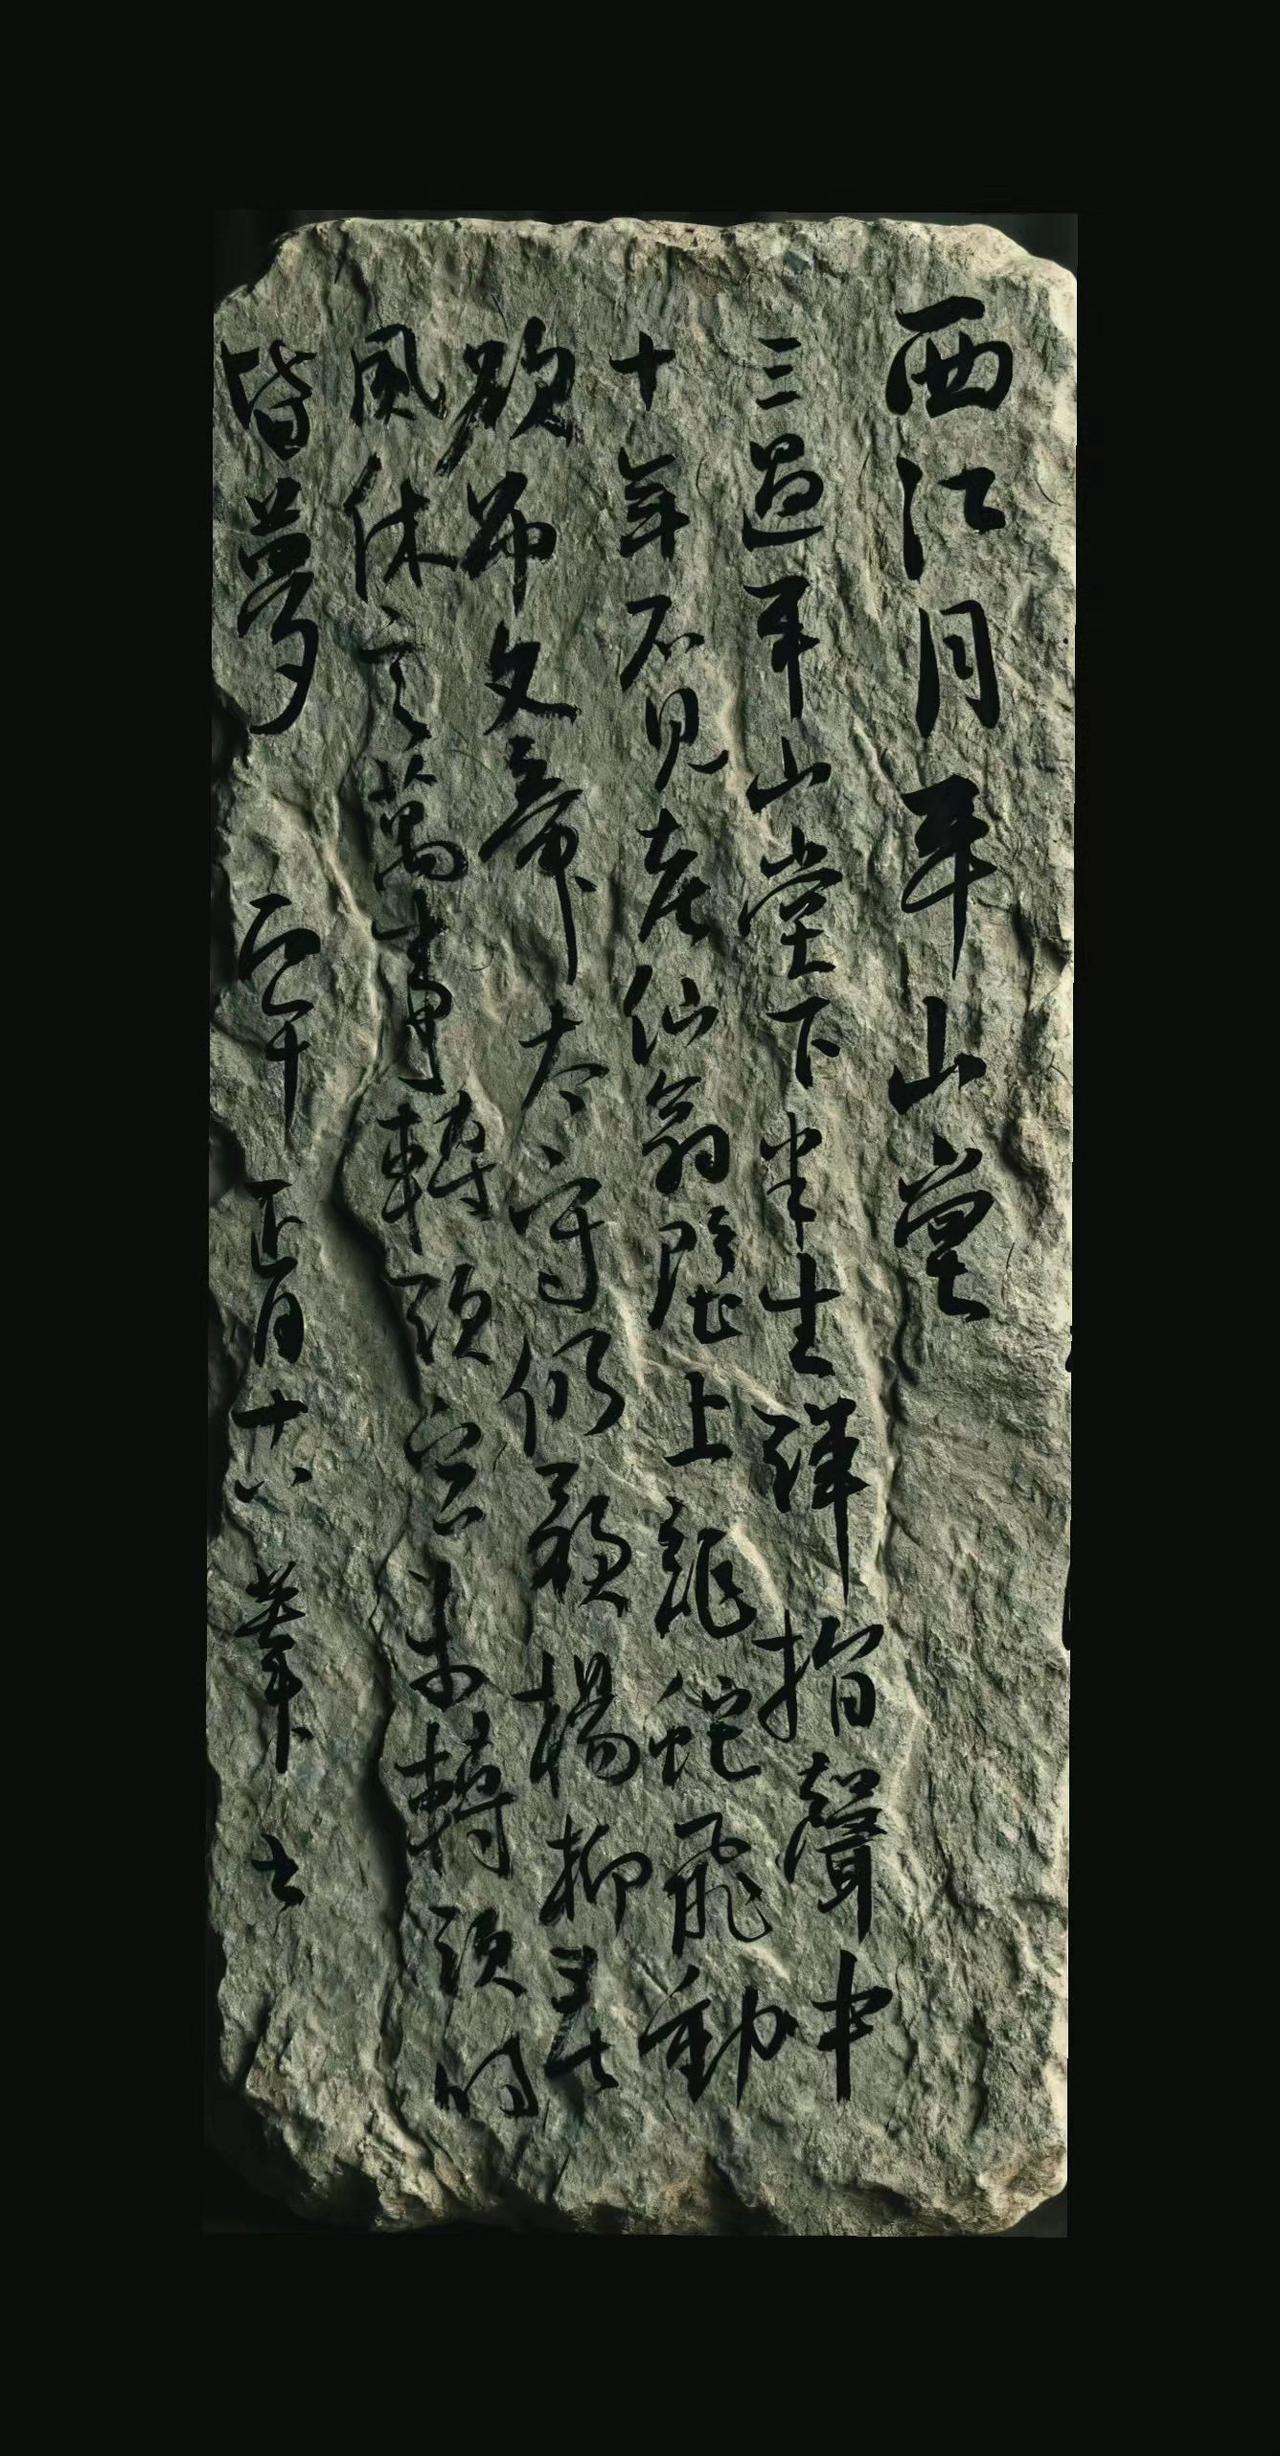 西江月平山堂
三過平山堂下半生彈指聲中
十年不見老仙翁壁上龍蛇飛動
欲弔文章太守仍歌楊柳春
風休言萬事轉頭空未轉頭時
皆夢 丙午 正月十八